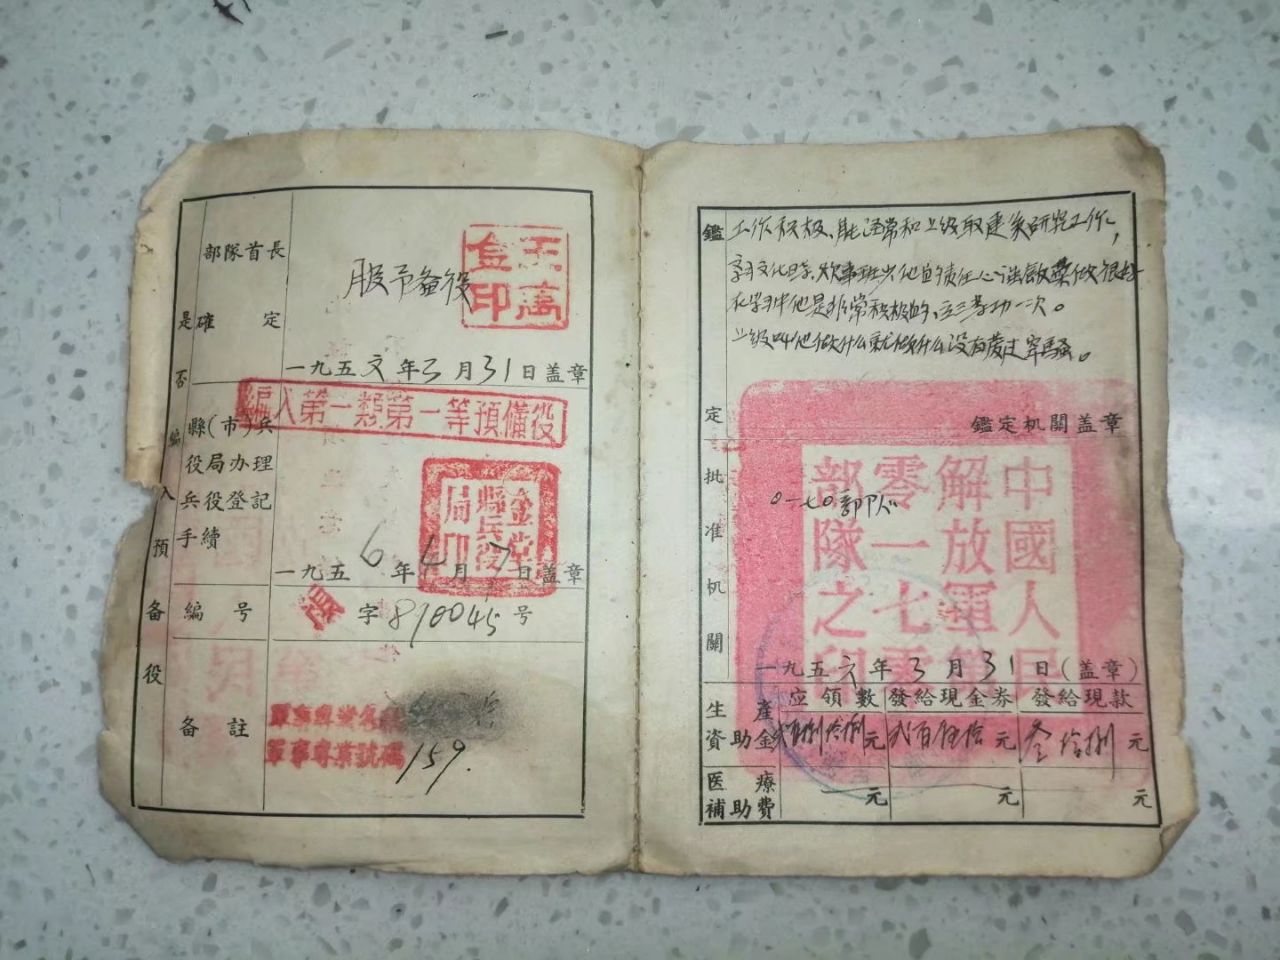 是否編入預备役
部隊首長
確定
服予备役
王萬金印
一九五六年3月31日盖章
編入第一類第一等預備役
縣(市)兵
役局办理
兵役登記
手續
金堂縣兵役局印
一九五6年6月7日盖章
編号
字810045号
备註
軍事專業名稱
軍事專業號碼 159.
鑑定
工作积极、能经常和上级取建矣研究工作,
学习文化日学.炊事班
他是非常积极的,立三等功一次。
上级叫他做什么就做什么没有发过牢騷。
鑑定机關盖章
批准机關
0一七0部队
中國人民解放軍第零一七零部隊之印
一九五六年3月31日(盖章)
生産資助金
应領數 發給現金券 發給現款
元 弍百伍拾元 叁拾捌元
医療補助費
元 元 元